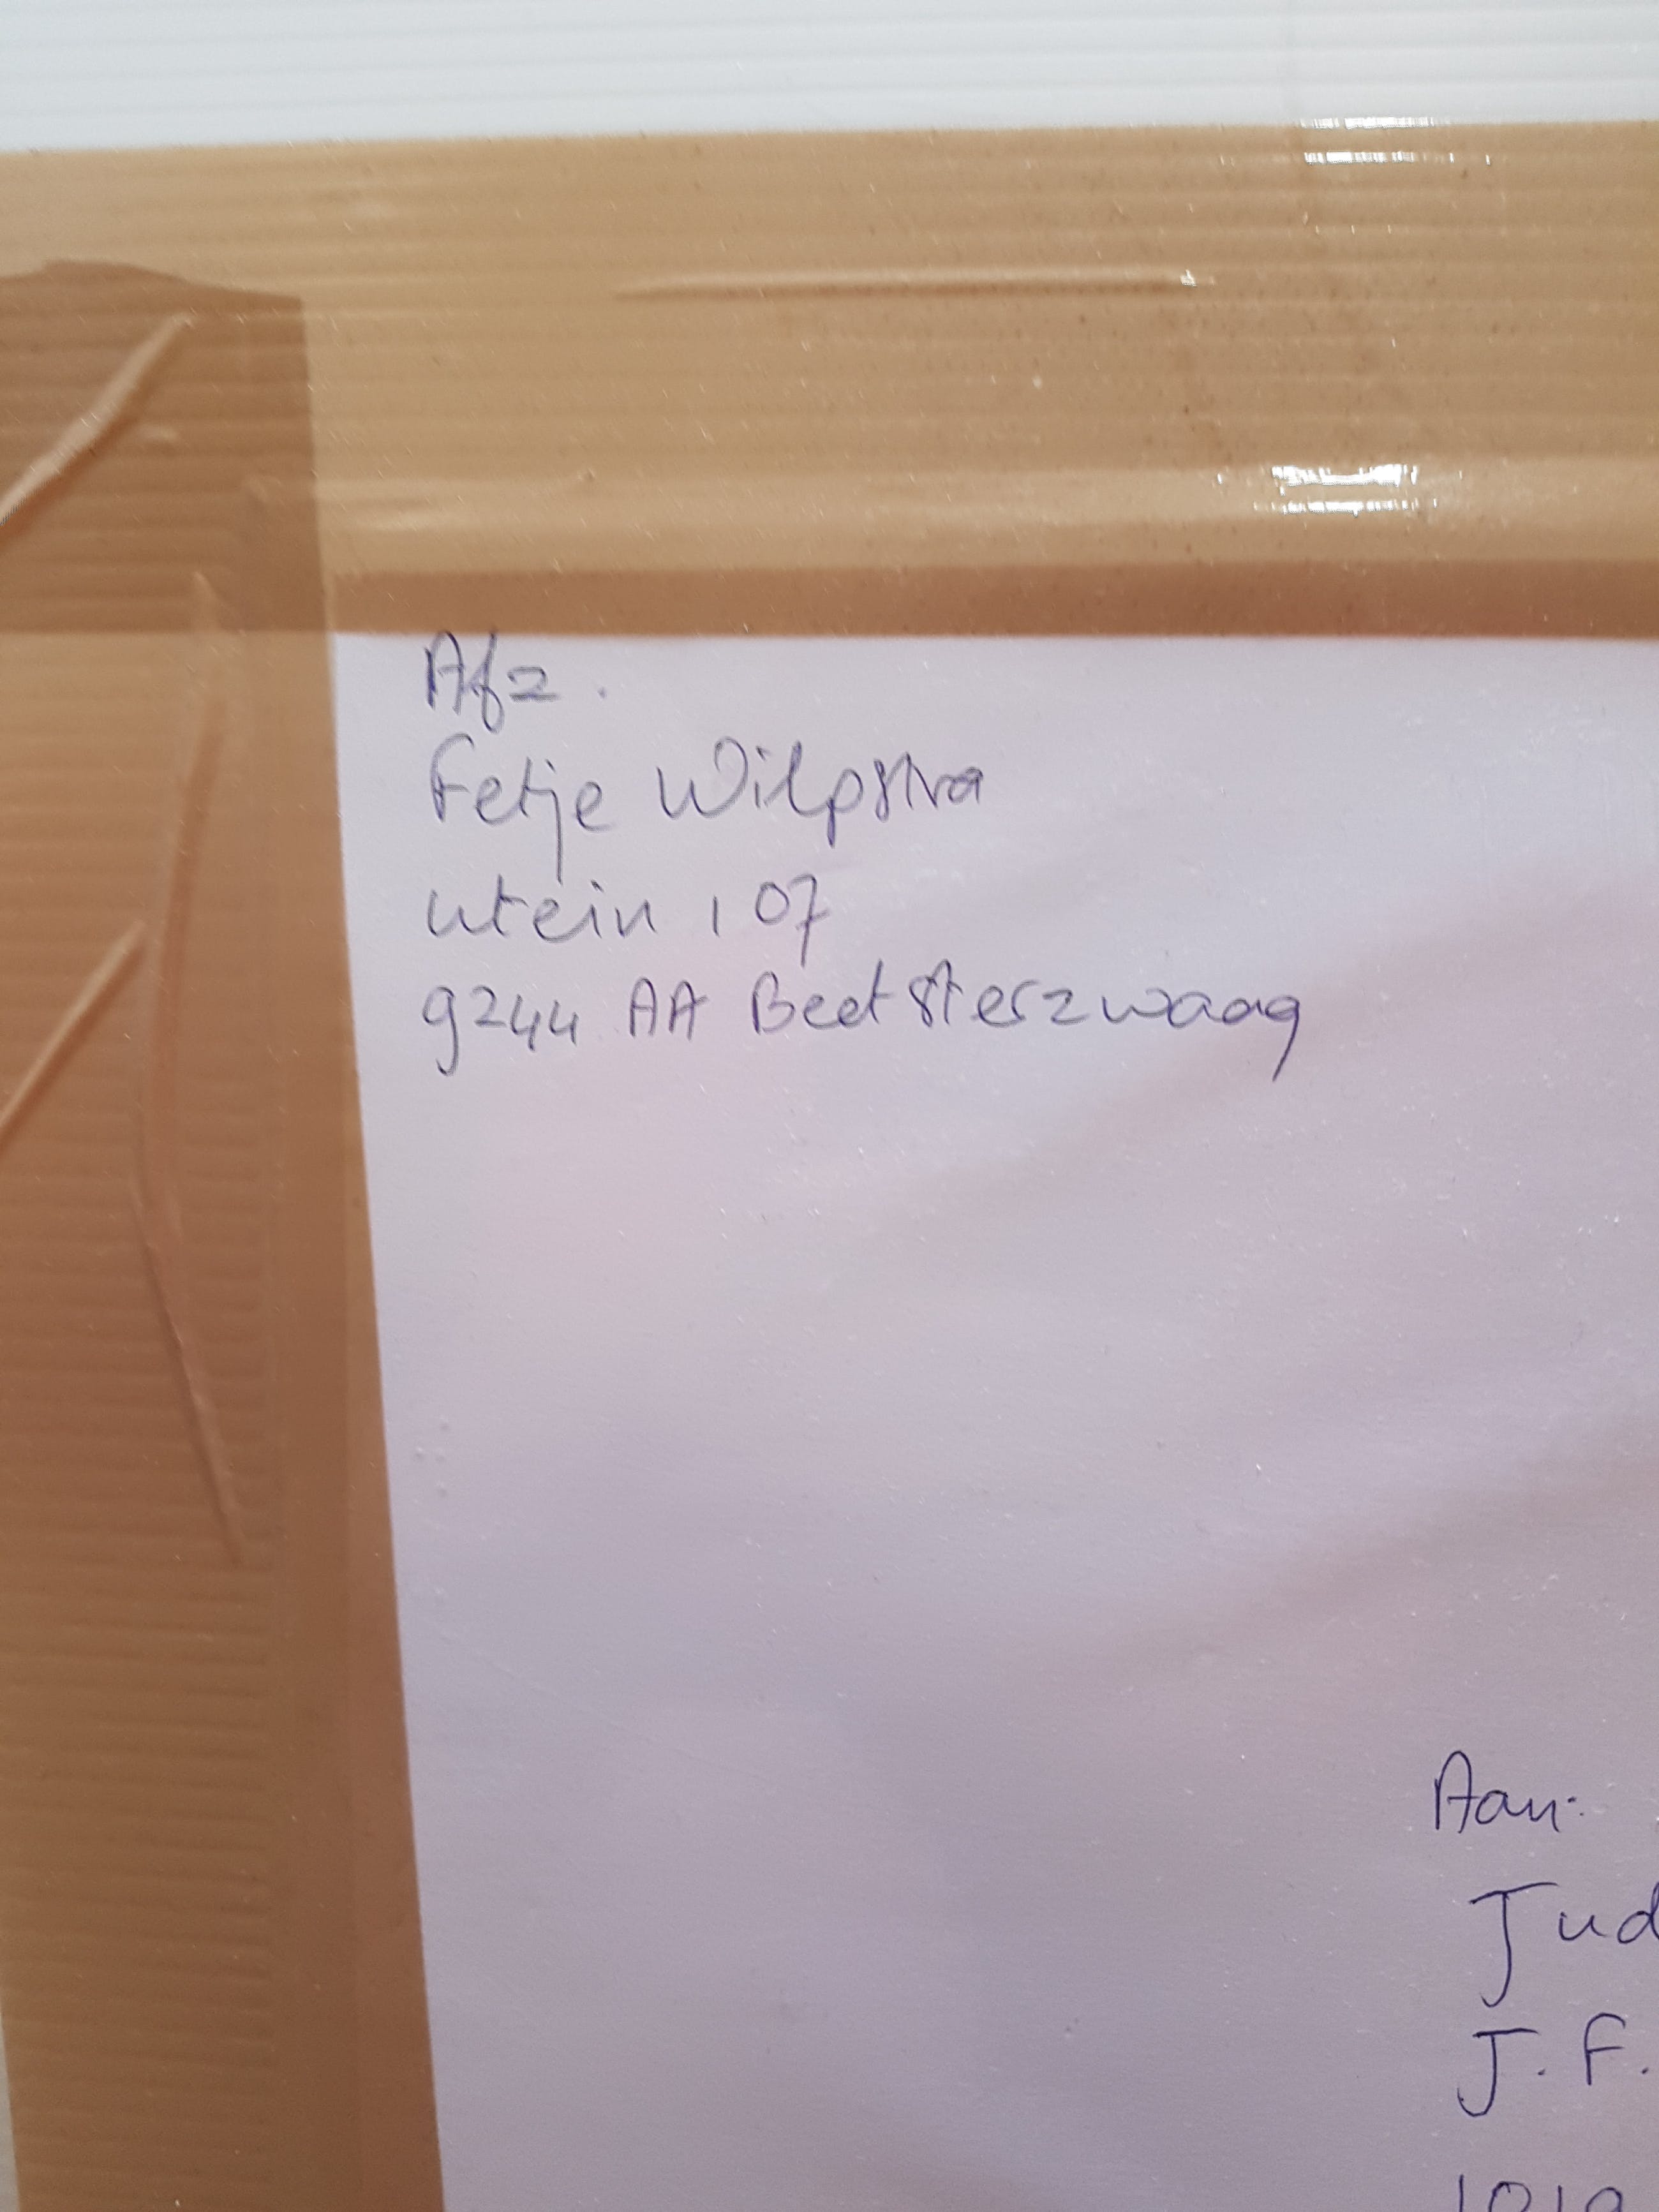 Afz.
Fetje Wilpstra
utein 107
9244 AA Beetsterzwaag
Aan:
Jud
J. F.
1019